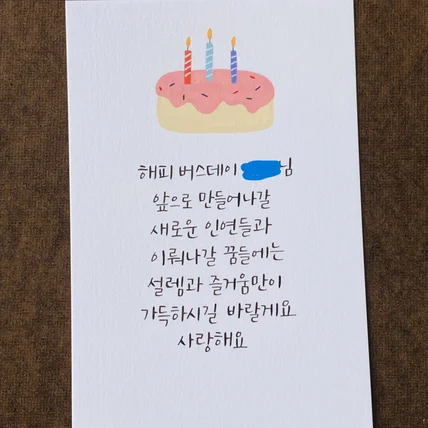 해피 버스데이 님
앞으로 만들어나갈
새로운 인연들과
이뤄나갈 꿈들에는
설렘과 즐거움만이
가득하시길 바랄게요
사랑해요